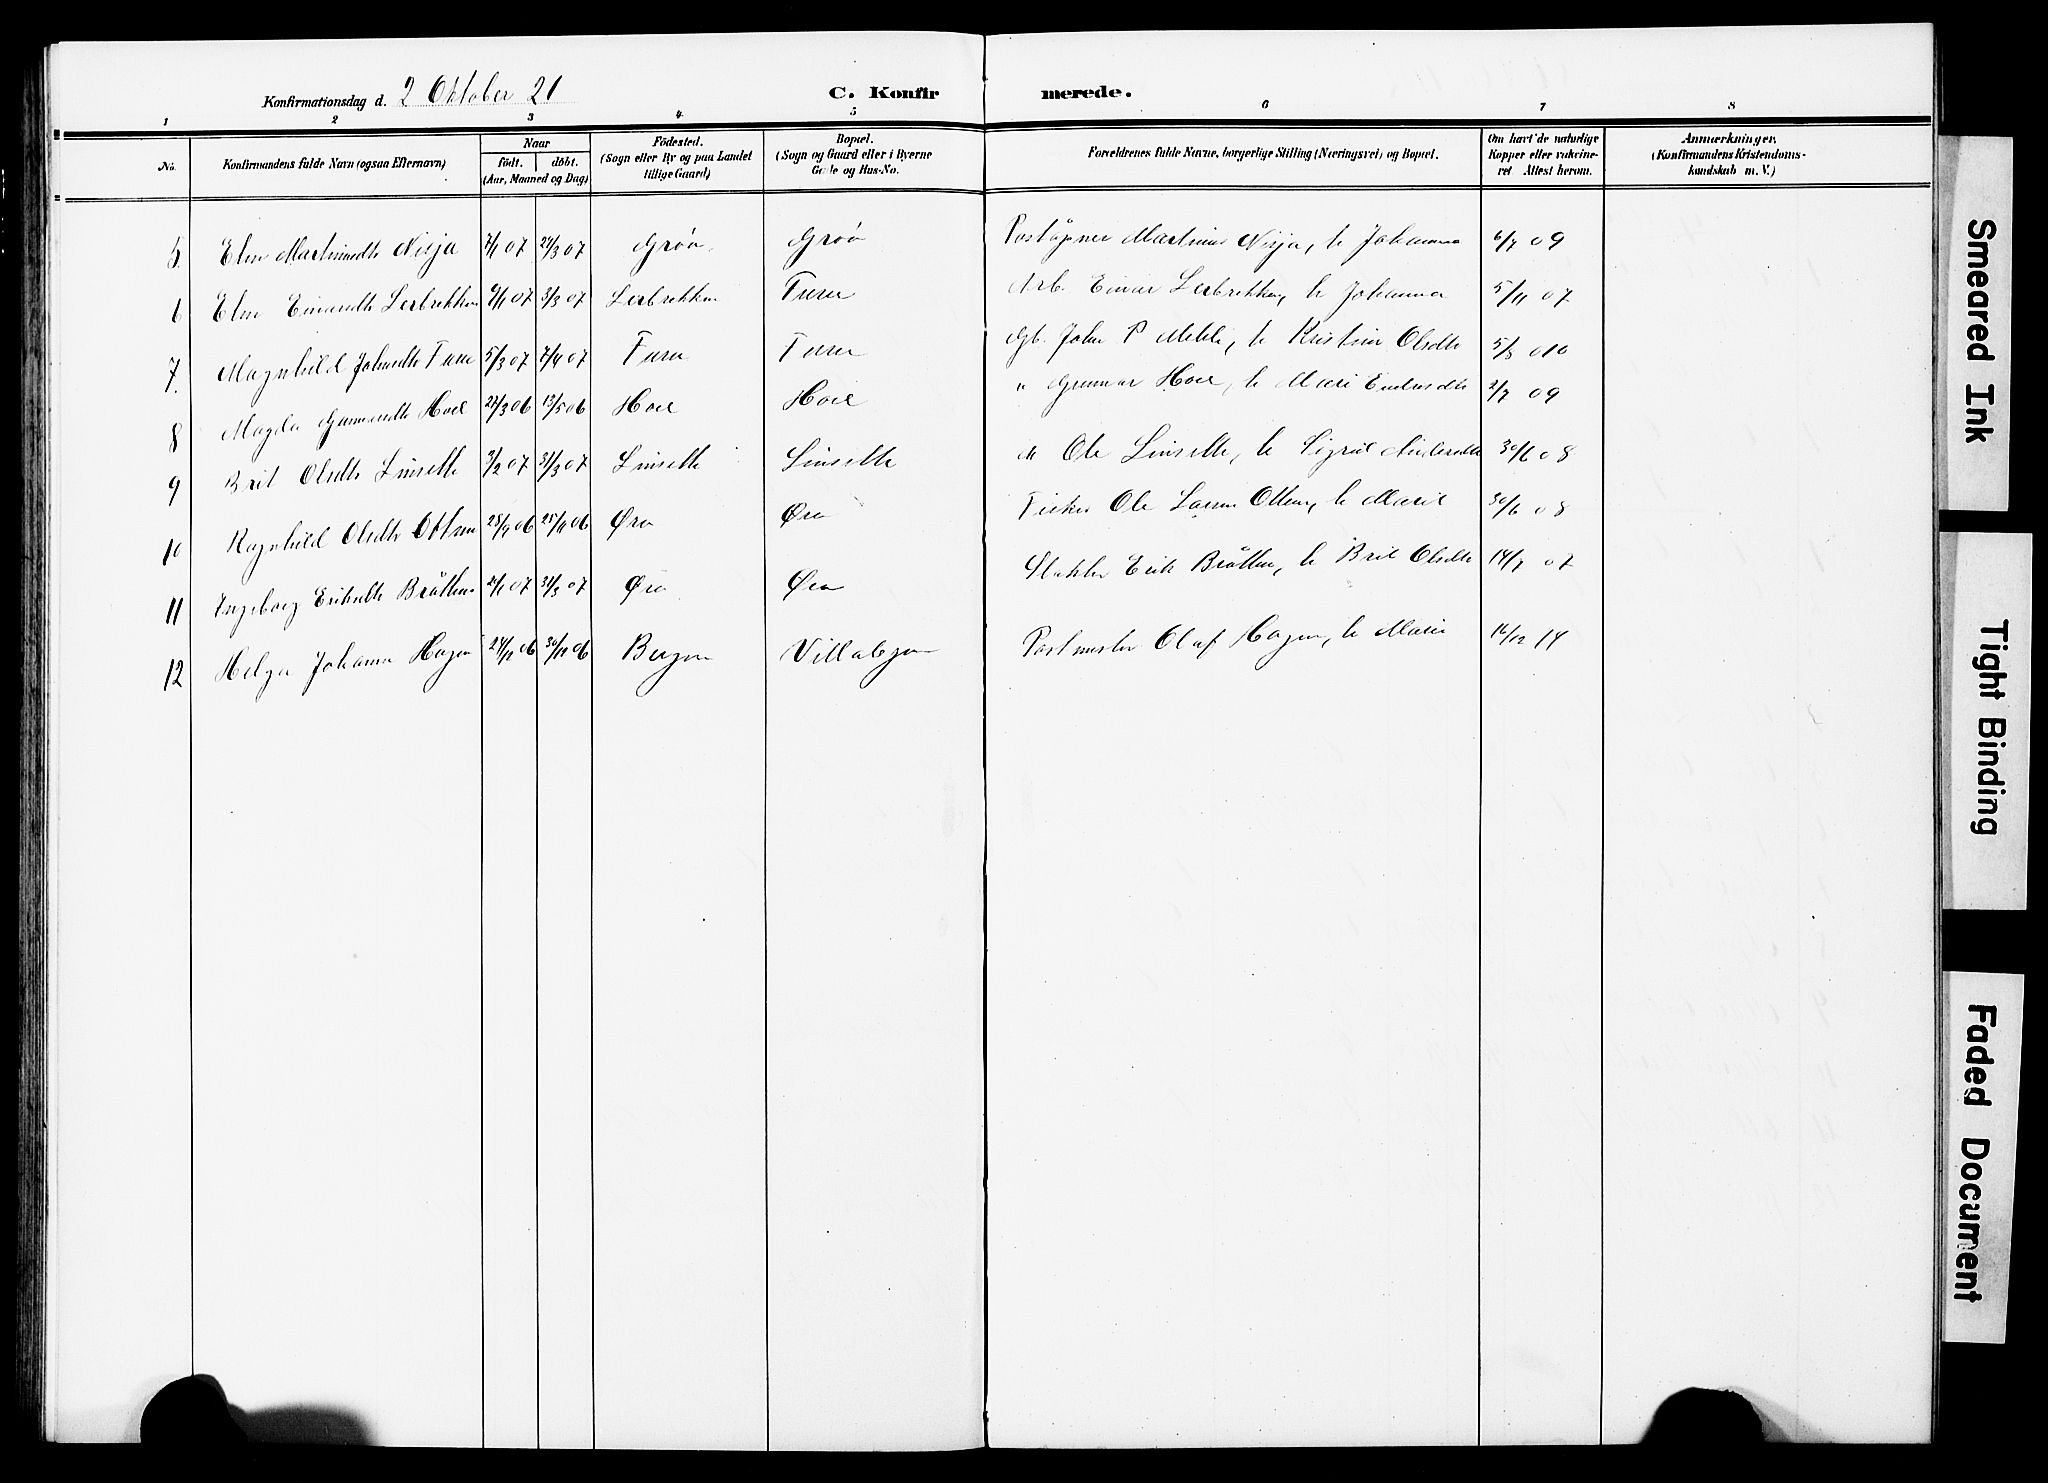 Konfirmationsdag d. 2 Oktober 21 C. Konfirmerede.
1 2 3 4 5 6 7 8
No. Konfirmandens fulde Navn (ogsaa Efternavn) Naar født. døbt. (Aar, Maaned og Dag) Fødested. (Sogn eller By og paa Landet tillige Gaard) Bopæl. (Sogn og Gaard eller i Byerne Gade og Hus-No. Forældrenes fulde Navne, borgerlige Stilling (Næringsvei) og Bopæl. Om havt de naturlige Kopper eller vakcineret. Attest herom. Anmærkninger. (Konfirmandens Kristendomskundskab m. V.)
5 Elen Martinusdtr Nisja 7/1 07 24/3 07 Grøa Grøa Postaapner Martinus Nisja, h Johanna 6/7 09
6 Elen Einarsdtr Lesbrekken 9/1 07 3/3 07 Lesbrekken Furu Arb. Einar Lesbrekken, h Johanna 5/11 07
7. Magnhild Johnsdtr Furu 5/3 07 7/4 07 Furu Furu Gb. John P Melkli, h Kristine Olsdtr 5/8 010
8 Magda Gunnarsdtr Hoel 27/3 06 13/5 06 Hoel Hoel " Gunnar Hoel, h Mari Endresdtr 2/7 09
9 Brit Olsdtr Linsette 3/2 07 31/3 07 Linsette Linsette " Ole Linsette, h Sigrid Andersdtr 30/6 08
10 Ragnhild Olsdtr Ottem 28/9 06 25/11 06 Øra Øra Fisker Ole Larsen Ottem, h Marit 30/6 08
11 Ingeborg Eriksdtr Bråtten 21/1 07 31/3 07 Øra Øra Slakter Erik Bråtten, h Brit Olsdtr 14/7 07
12 Helga Johanne Hagen 24/12 06 30/12 06 Bergen Villabyen Postmester Olaf Hagen, h Marie 16/12 14
Smeared Ink
Tight Binding
Faded Document